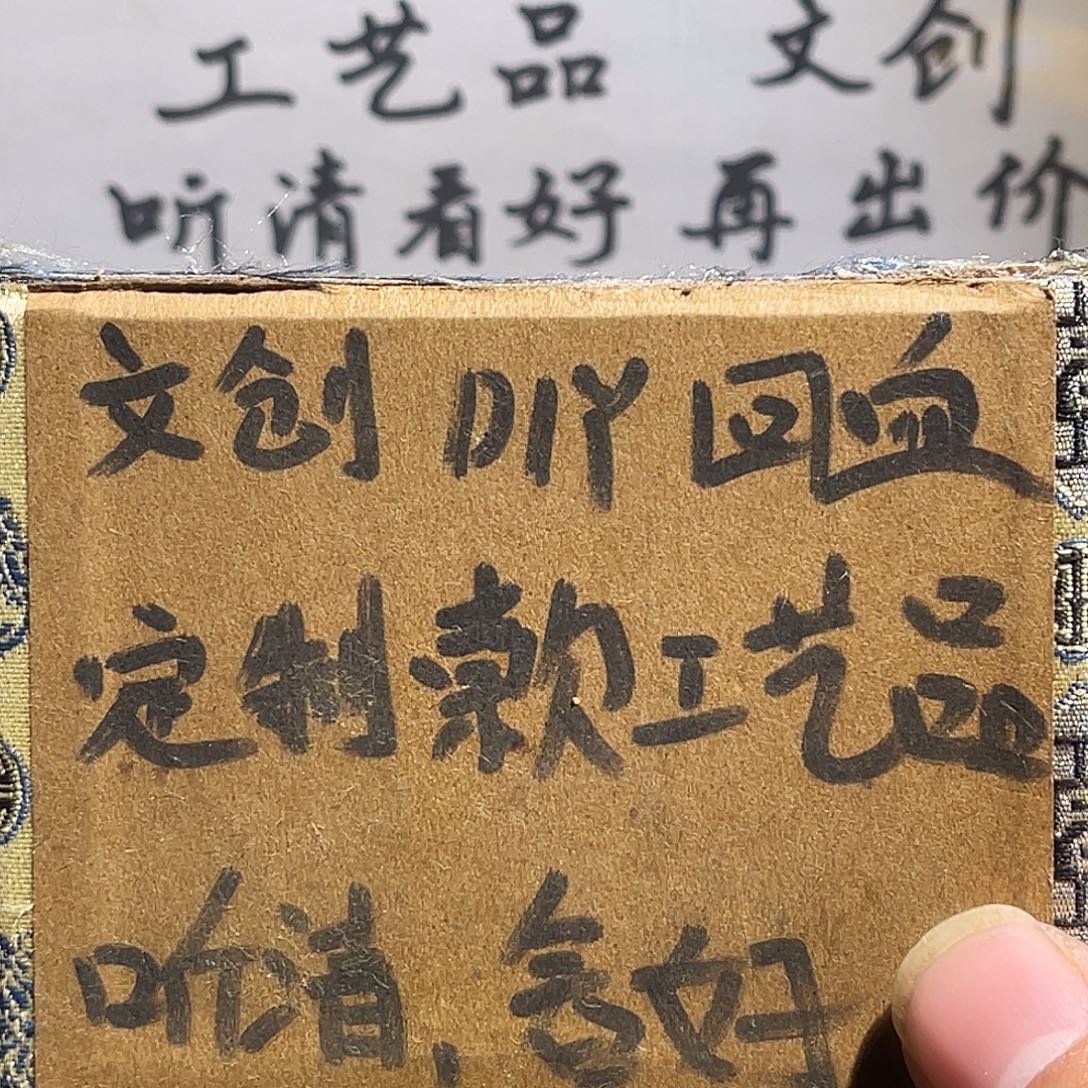 工艺品 文创
听清看好再出价
文创 DIY 回血
定制款工艺品
听清,看好